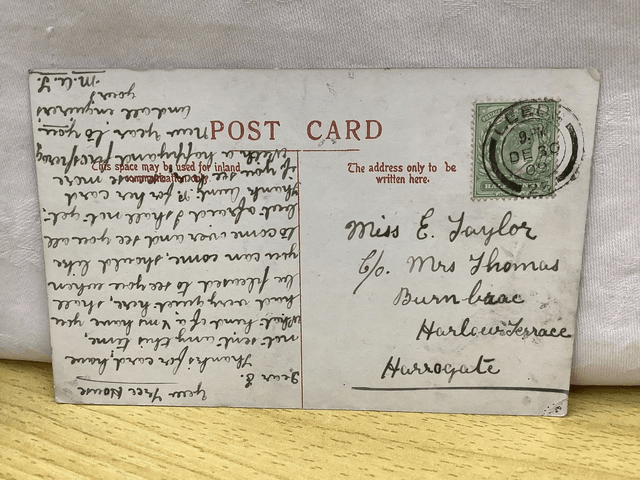 POST CARD
This space may be used for inland
communication only
The address only to be
written here.
LEEDS
DE 30
Miss E. Taylor
C/o. Mrs Thomas
Burnbrae
Harlow Terrace
Harrogate
Yew Tree House
Dear E.
Thanks for card, have
not sent any this time,
What kind of a Xmas have you
had very quiet here, shall
be pleased to see you when
you can come, should like
to come over and see you all
but afraid I shall not yet.
Thank Aunt. for her card
if you see her
With a happy and prosperous
New Year to you
and all enquirers
yours